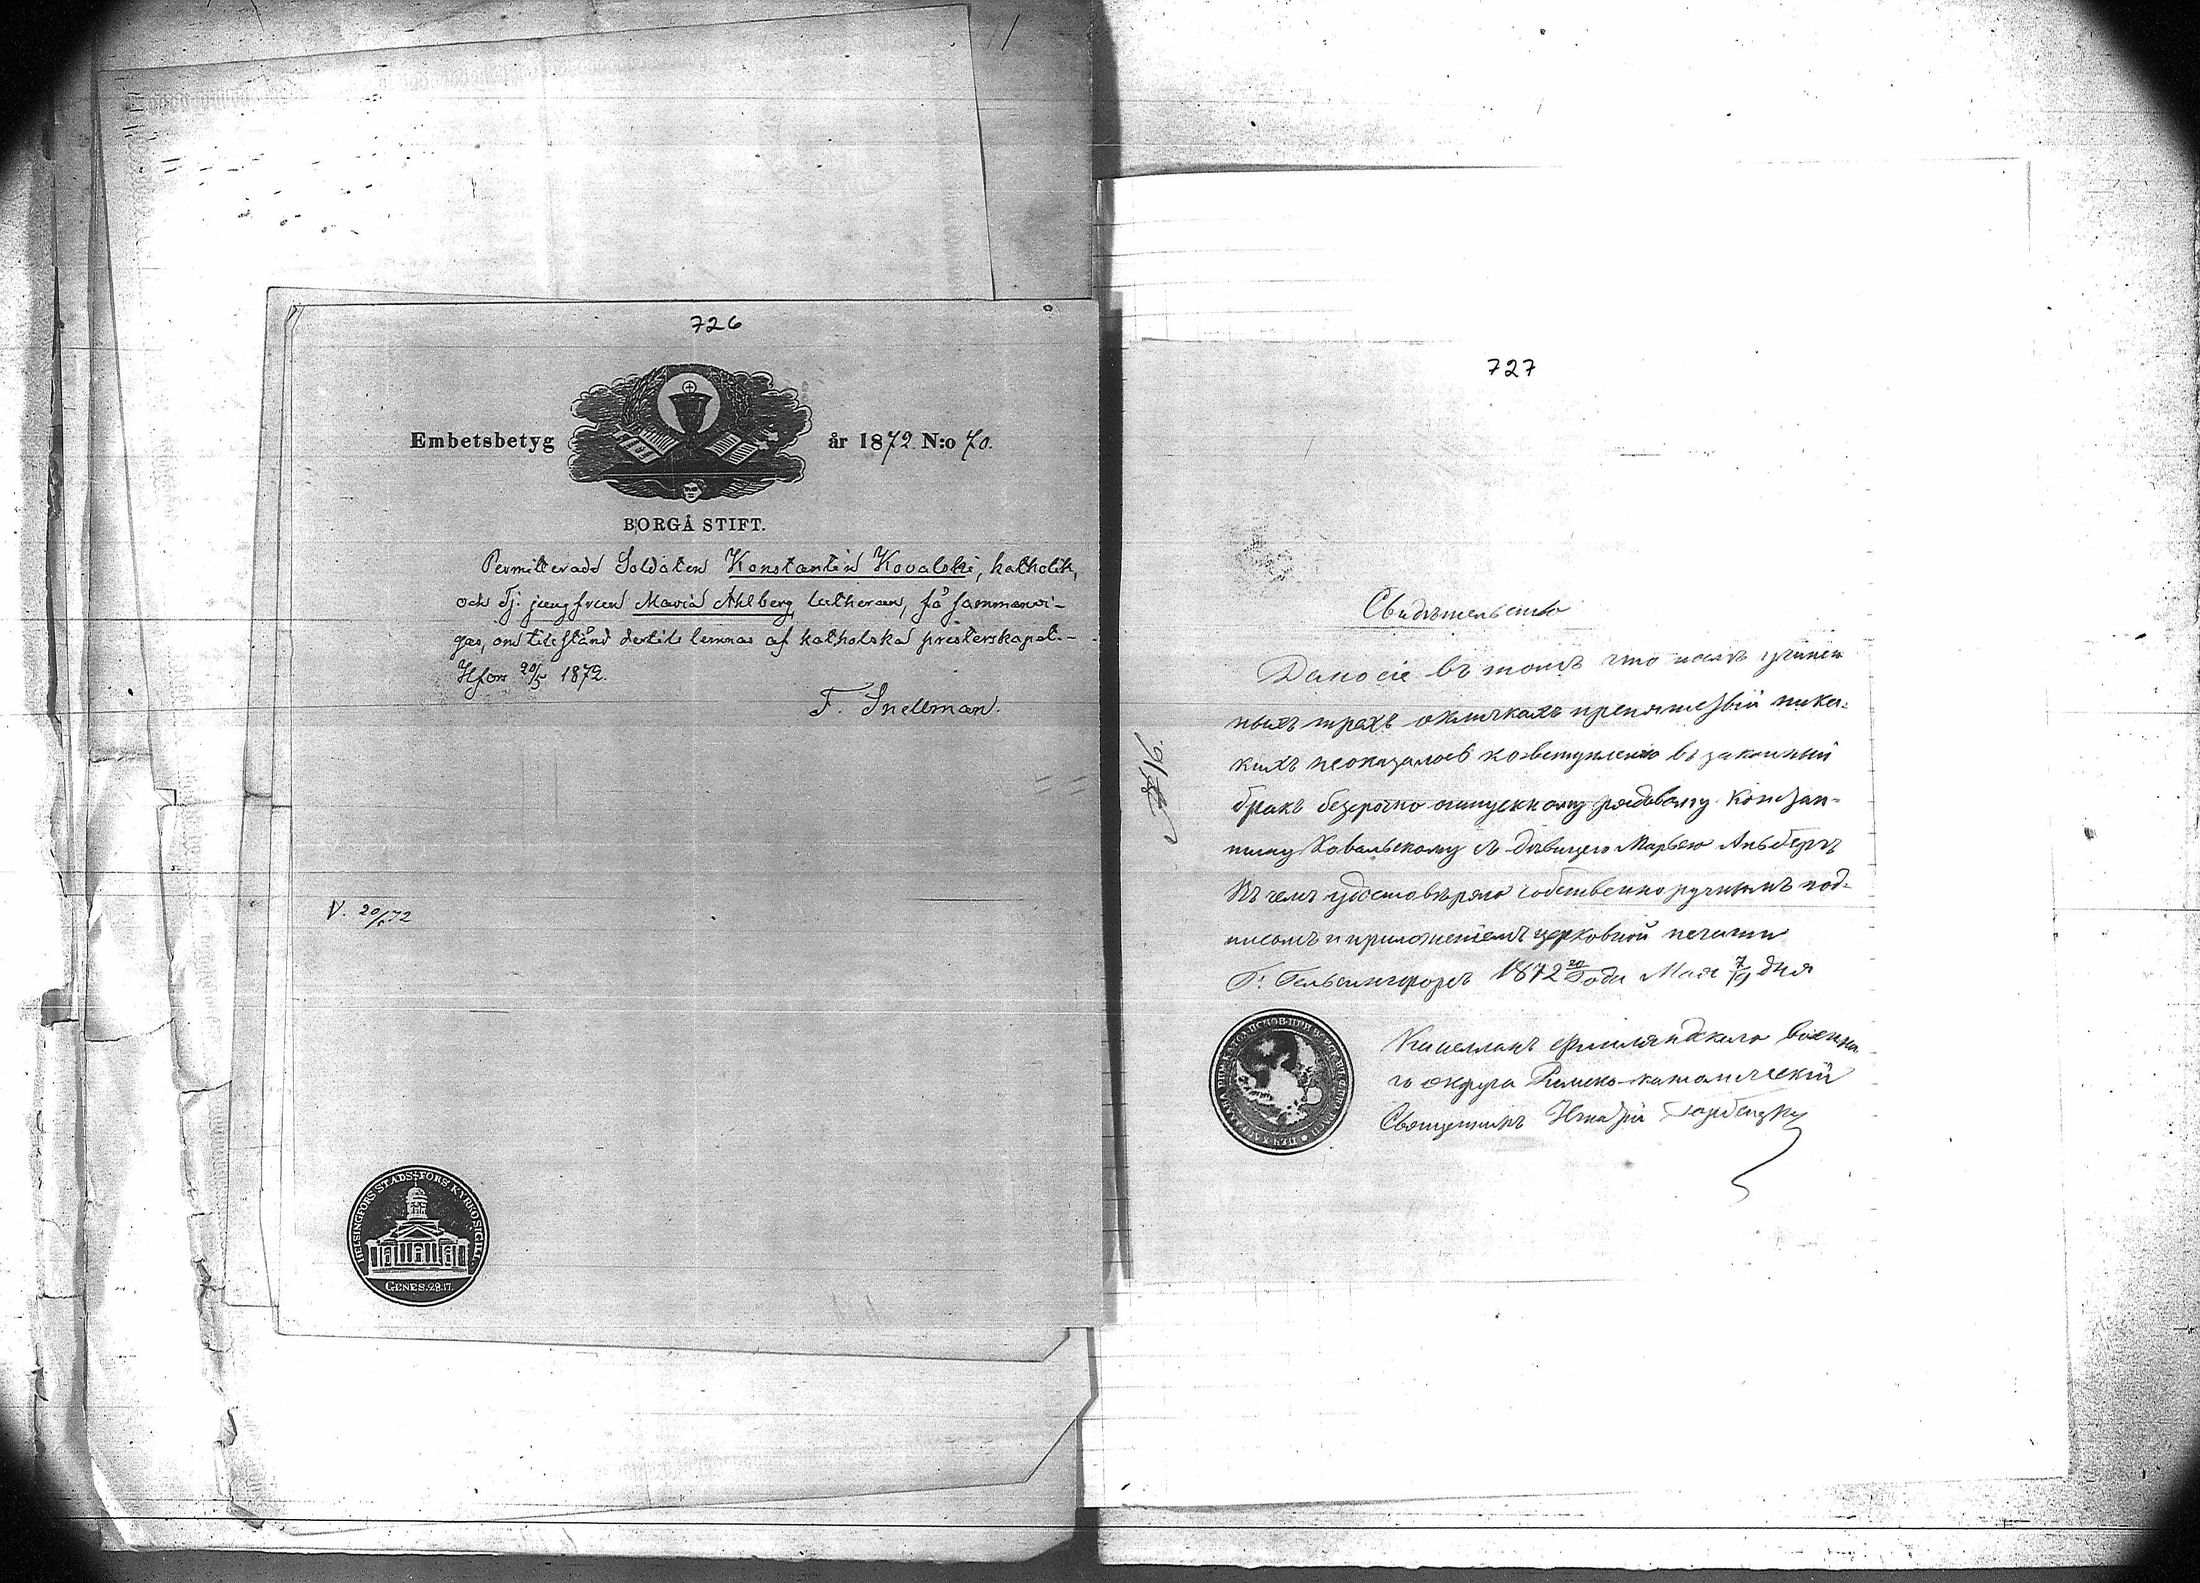 726
Embetsbetyg år 1872. N:o 70.
BORGÅ STIFT.
Permitterade Soldaten Konstantin Kovalski, katholik,
och Tj. jungfrun Maria Ahlberg lutheran, få sammanvi-
gas, om tillstånd dertill lemnas af katholska presterskapet.-
Hfors 20/5 1872.
F. Snellman.
V. 20/5 72
HELSINGFORS STADS-FÖRS. KYRKO SIGILL.
GENES. 28.17.
727
№ 16.
Свидѣтельство
Дано сіе въ томъ что послѣ учинен
ныхъ трехъ окличкахъ препятствій ника-
кихъ неоказалось ко вступленію въ законный
бракъ безсрочно отпускному рядовому Констан-
тину Ковальскому съ дѣвицею Марьею Альбергъ
Въ чемъ удостовѣряю собственноручнымъ под-
писомъ и приложеніемъ церковной печати
Г. Гельсингфорсъ 1872 20 года Мая 7/19 дня
Капелланъ Финляндскаго военна
го округа Римско-католическій
Священникъ